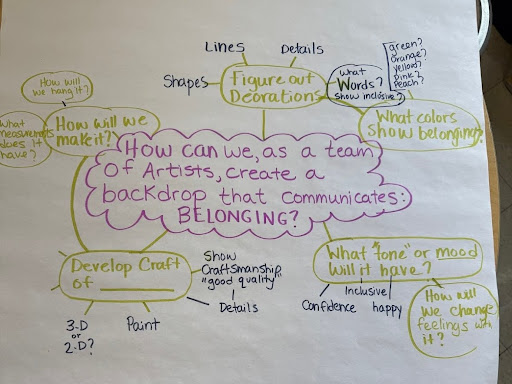 Lines
Details
Shapes
Figure out
Deorations
What
Words?
show inclusive?
green?
orange?
yellow?
pink?
Peach?
What colors
show belonging?
How will
we hang it?
What
measurements
does it
have?
How will we
make it?
How can we, as a team
Of Artists, create a
backdrop that communicates:
BELONGING?
Develop Craft
of
Show
Craftsmanship
"good quality"
Details
3-D
or
2-D?
Paint
What "tone" or mood
Will it have?
Confidence
Inclusive
happy
How will
We change
feelings with
it?